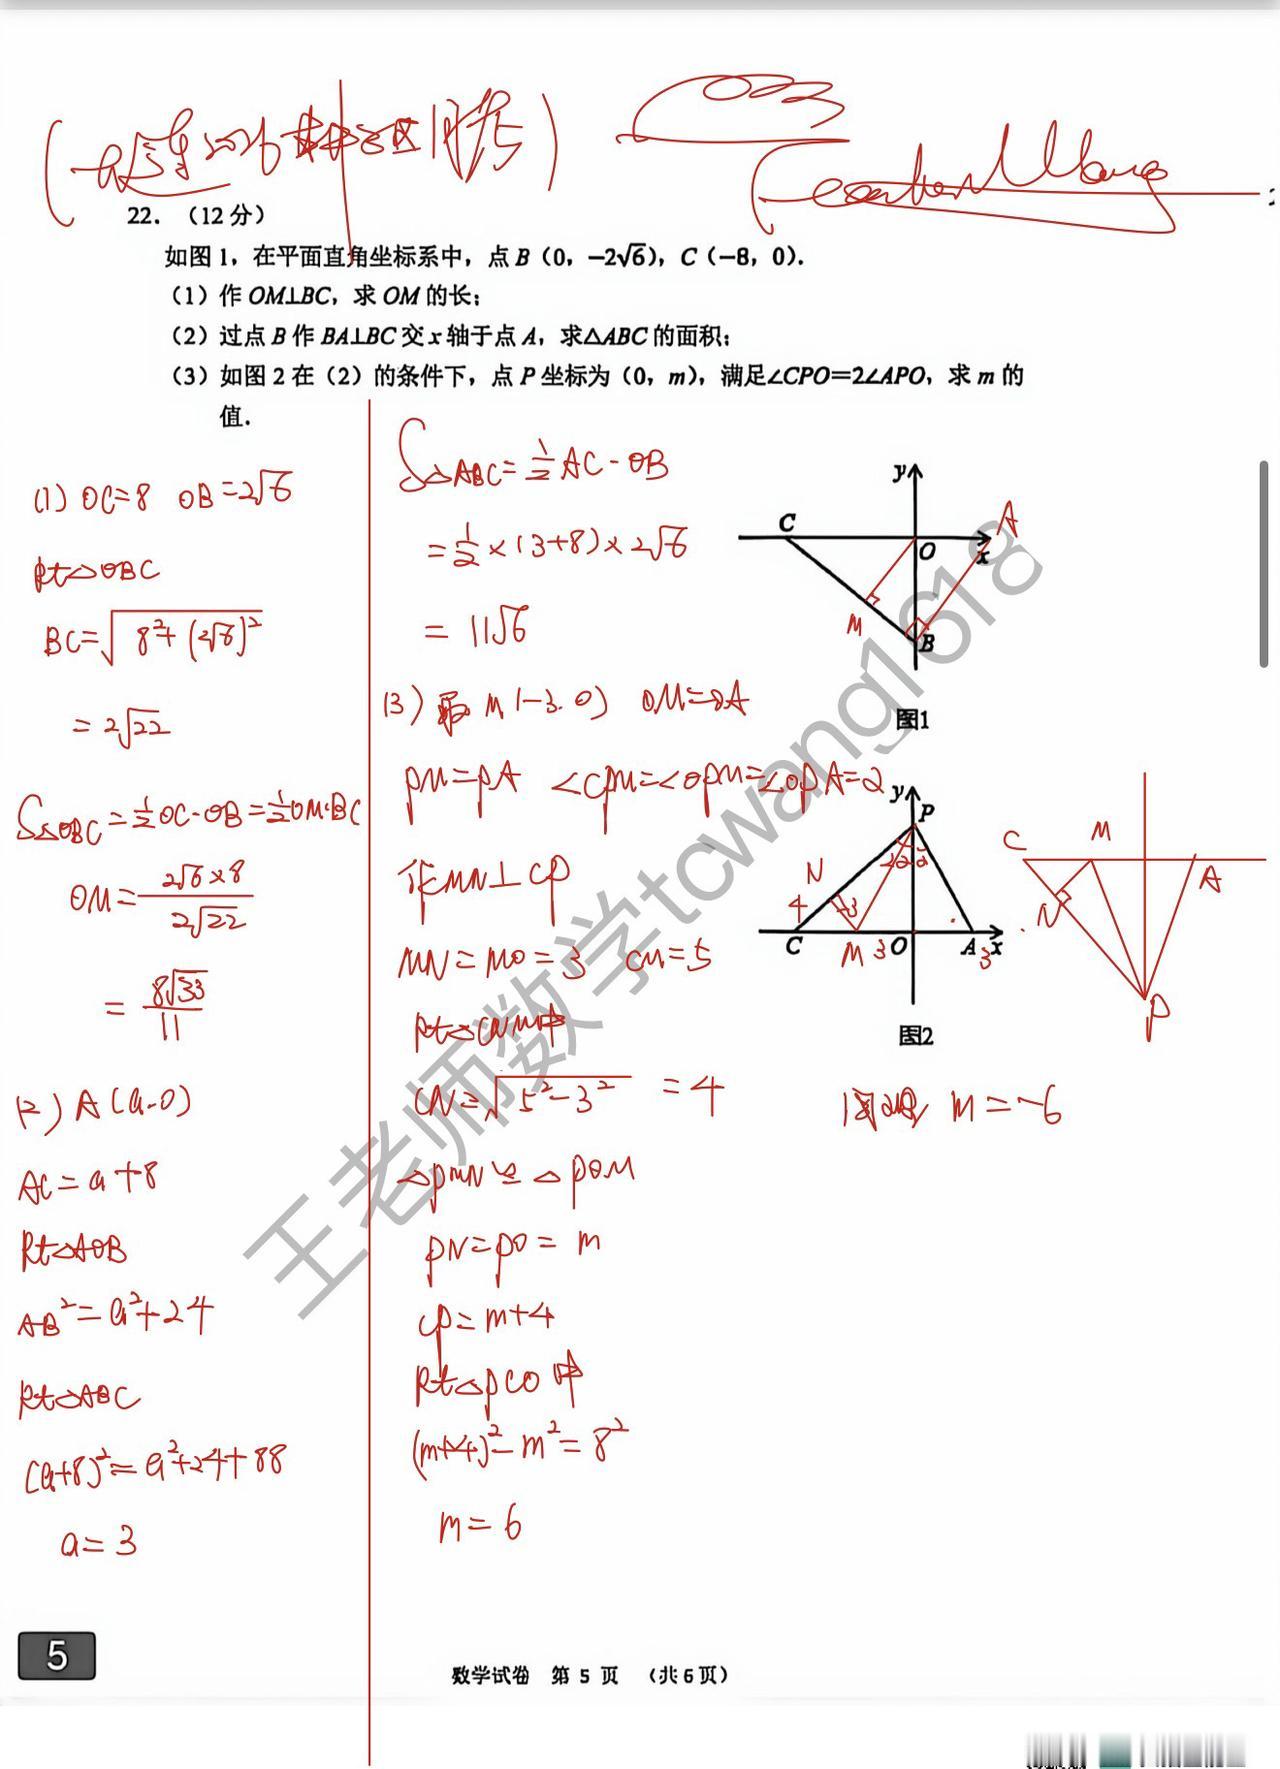 22. （12分）
如图1，在平面直角坐标系中，点B（0，−2√6），C（−8，0）.
（1）作OM⊥BC，求OM的长；
（2）过点B作BA⊥BC交x轴于点A，求△ABC的面积；
（3）如图2在（2）的条件下，点P坐标为（0，m），满足∠CPO＝2∠APO，求m的
值.
(1) OC=8 OB=2√6
Rt△OBC
BC=√(8²+(2√6)²)
=2√22
S△OBC=½OC·OB=½OM·BC
OM=2√6×8/2√22
=8√33/11
(2) A(a,0)
AC=a+8
Rt△AOB
AB²=a²+24
Rt△ABC
(a+8)²=a²+24+88
a=3
S△ABC=½AC·OB
=½×(3+8)×2√6
=11√6
(3) 取M(-3,0) OM=OA
PM=PA ∠CPM=∠OPM=∠OPA=2
作MN⊥CP
MN=MO=3 CM=5
Rt△CNM中
CN=√(5²-3²) =4
△PMN≌△POM
PN=PO=m
CP=m+4
Rt△PCO中
(m+4)²-m²=8²
m=6
y
C
O
A
x
M
B
图1
y
P
N
4
3
C
M
3
O
A
3
x
图2
C
M
A
N
P
同理 m=-6
王老师数学tcwang1618
5
数学试卷 第5页 （共6页）